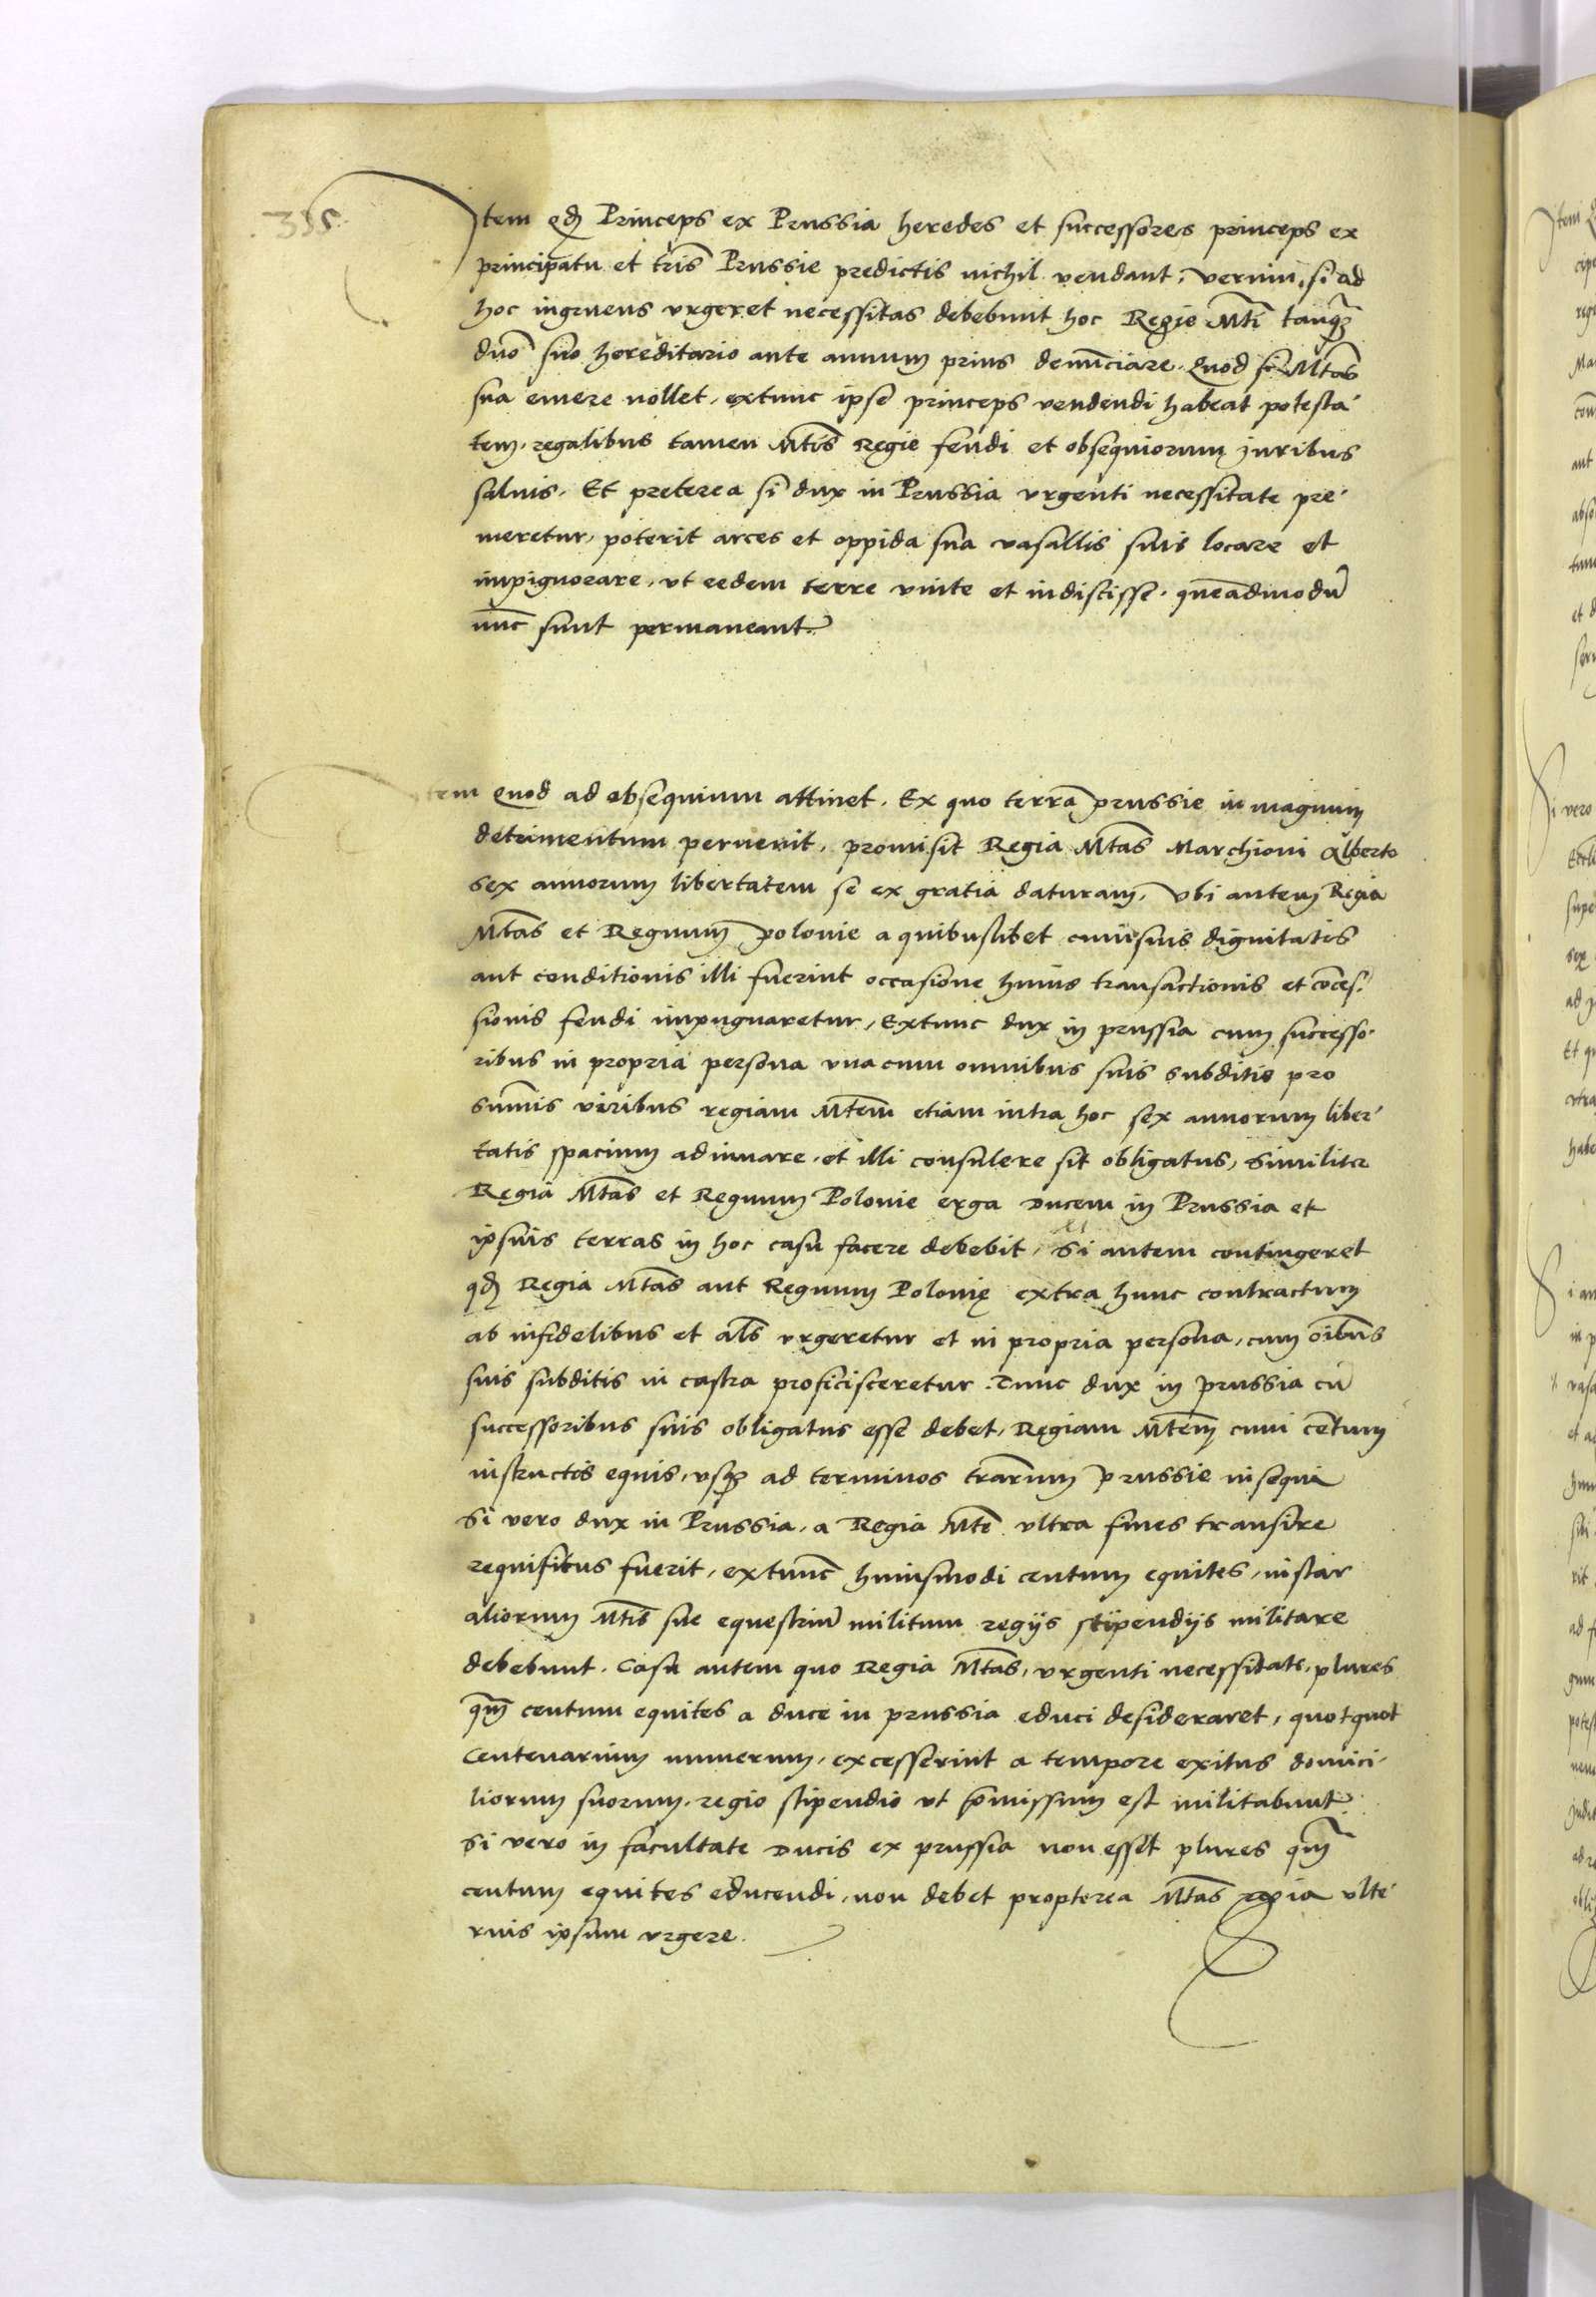 335
Item qd Princeps ex Prussia heredes et successores princeps ex
principatu et tris Prussie predictis nichil vendant, verum, si ad
hoc ingruens urgeret necessitas debebunt hoc Regie Mti tanqz
duo suo hereditario ante annum prius denunciare. Quod si Mtas
sua emere nollet, extunc ipse princeps vendendi habeat potesta
tem, regalibus tamen Mtis Regie feudi et obsequiorum juribus
saluis. Et preterea si dux in Prussia urgenti necessitate pre
meretur, poterit arces et oppida sua vasallis suis locare et
impignorare, ut eedem terre vnite et indiscisse. queadmodu
nunc sunt permaneant.
tem Quod ad obsequium attinet. Ex quo terra prussie in magnum
detrimentum peruenit, promisit Regia Mtas Marchioni Alberto
sex annorum libertatem se ex gratia daturam, Vbi autem Regia
Mtas et Regnum polonie a quibuslibet cuiusuis dignitatis
aut conditionis illi fuerint occasione huius transactionis et conces
sionis feudi impugnaretur, Extunc dux in prussia cum successo
ribus in propria persona vna cum omnibus suis subditis pro
summis viribus regiam Mtem etiam intra hoc sex annorum liber
tatis spacium adiuuare, et illi consulere sit obligatus, Similiter
Regia Mtas et Regnum Polonie erga Ducem in Prussia et
ipsius terras in hoc casu facere debebit, Si autem contingeret
qd Regia Mtas aut Regnum Polonię extra hunc contractum
ab infidelibus et als vrgeretur et in propria persona, cum oibus
suis subditis in castra proficisceretur. Tunc dux in prussia cu
successoribus suis obligatus esse debet, Regiam Mtem cum centum
instructis equis, vsqz ad terminos trarum prussie insequi
Si vero dux in Prussia, a Regia Mte vltra fines transire
requisitus fuerit, extunc huiusmodi centum equites, instar
aliorum Mtis sue equestriu militum regijs stipendijs militare
debebunt. Casu autem quo Regia Mtas, vrgenti necessitate, plures
qm centum equites a duce in prussia educi desideraret, quotquot
Centenarium numerum, excesserint a tempore exitus domici
liorum suorum, regio stipendio vt pmissum est militabunt
Si vero in facultate Ducis ex prussia non esset plures qm
centum equites educendi, non debet propterea Mtas regia vlte
rius ipsum vrgere.